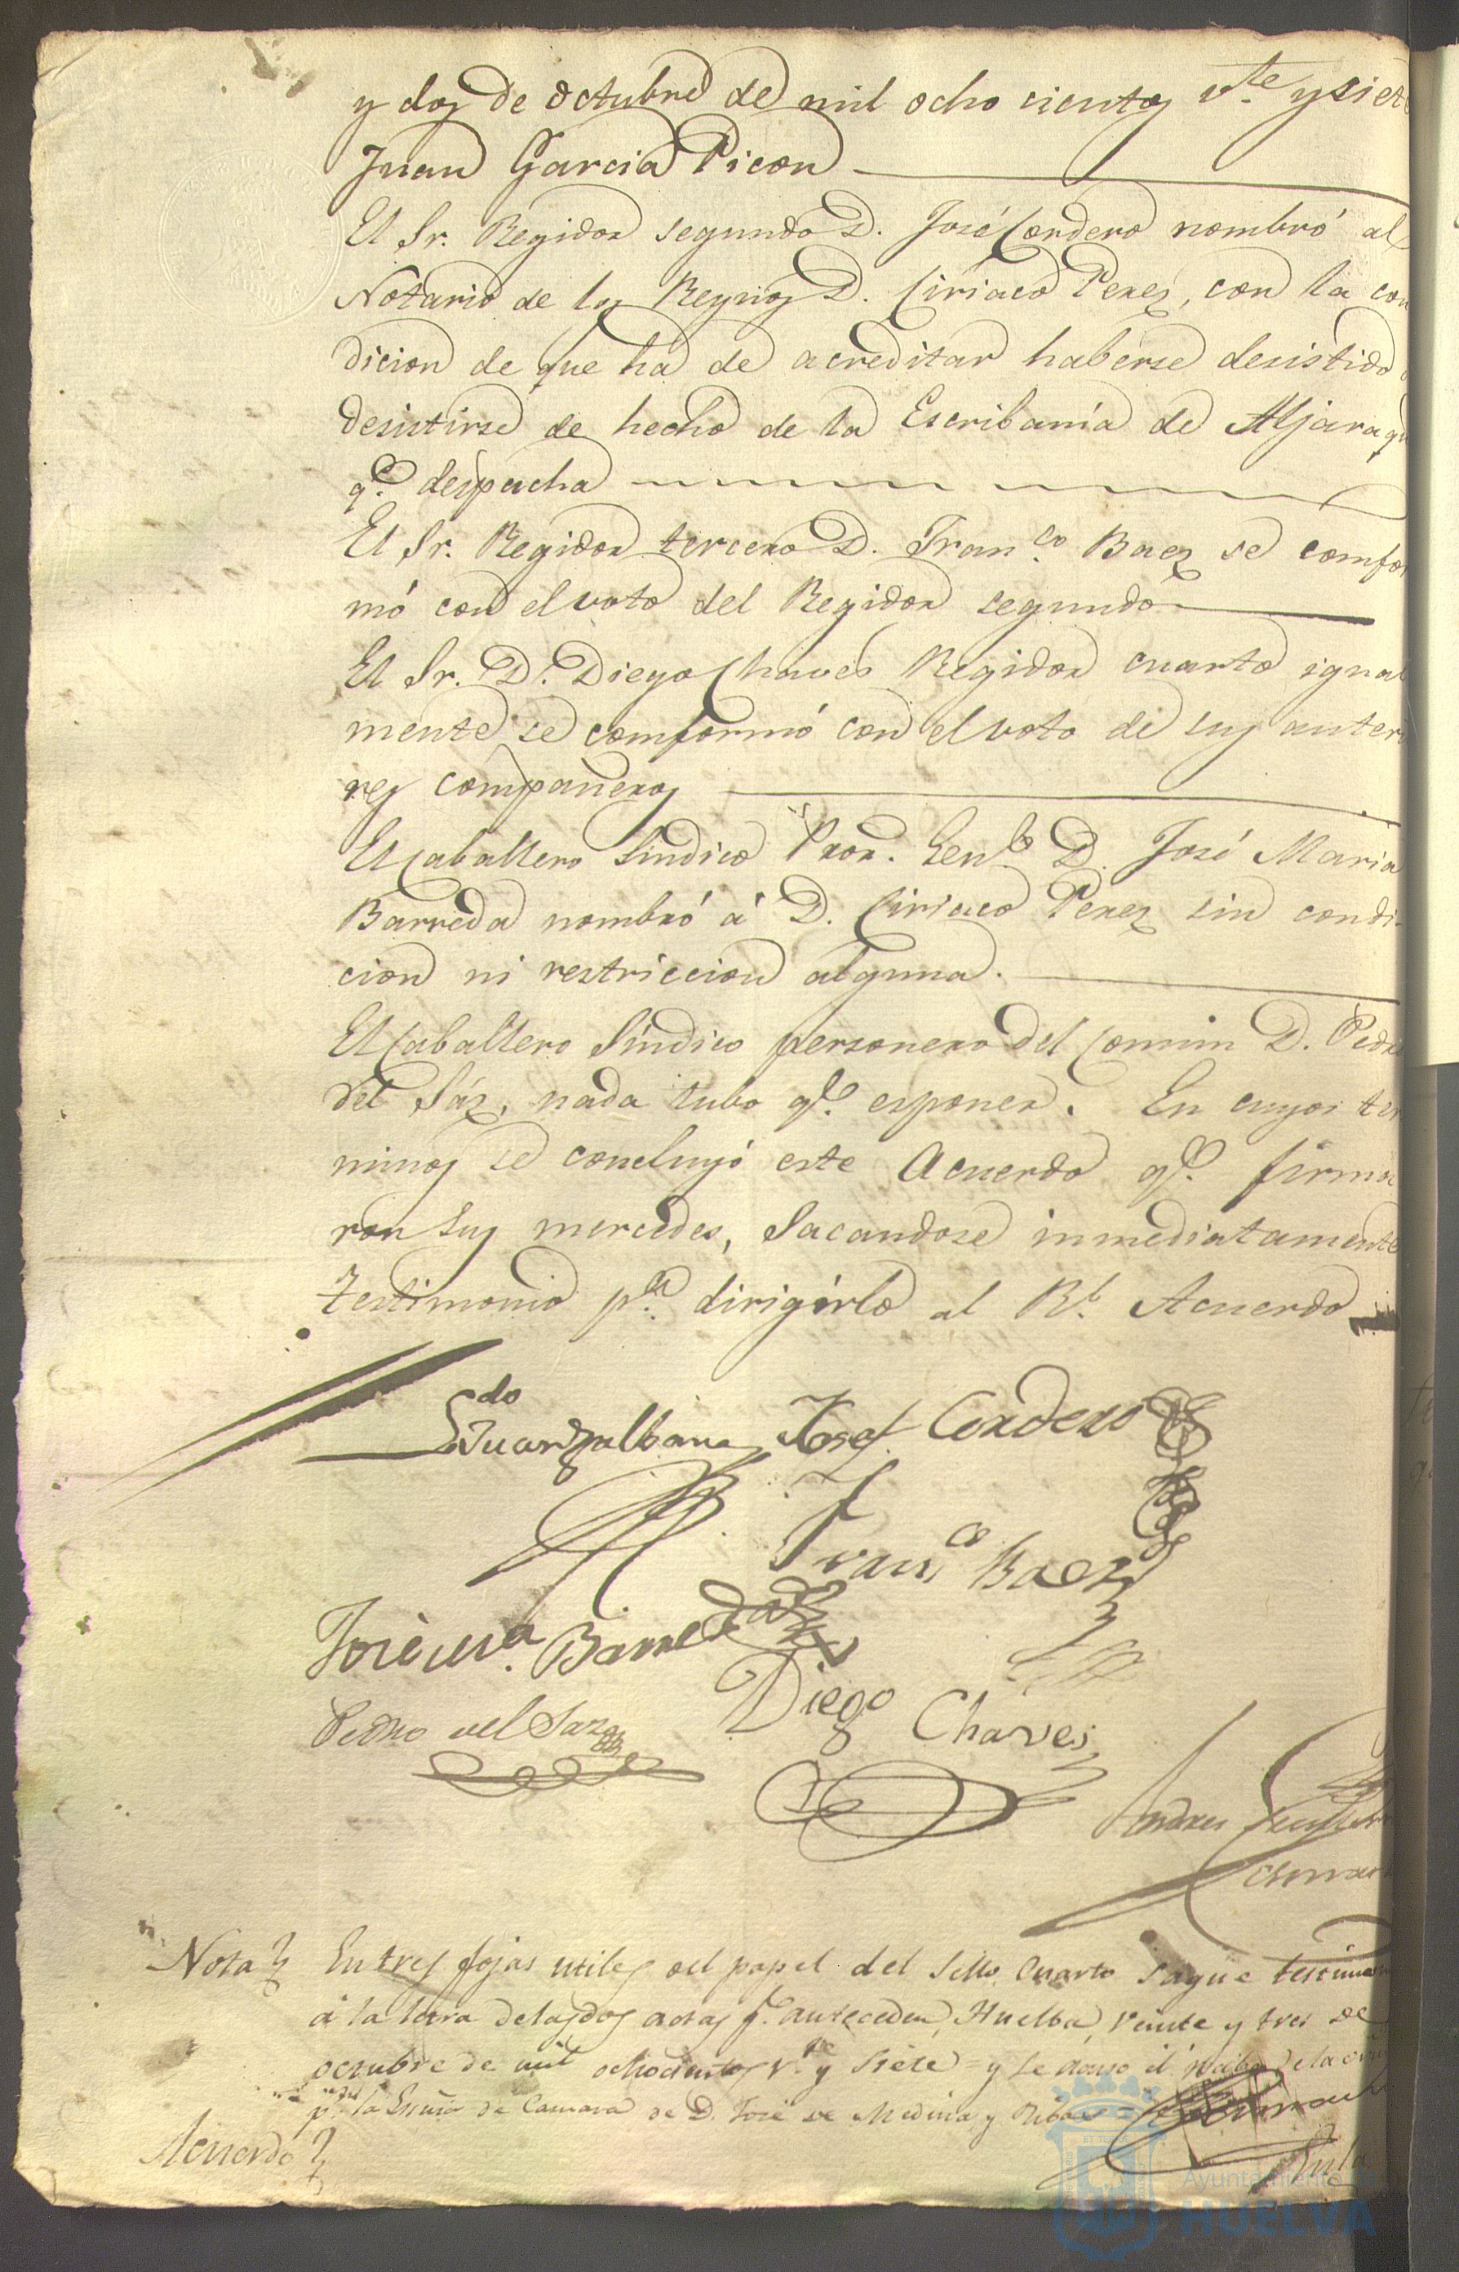 y dos de octubre de mil ocho cientos vte y siete
Juan Garcia Picon
El Sr. Regidor segundo D. José Cordero nombró al
Notario de los Reynos D. Ciriaco Perez, con la con
dicion de que ha de acreditar haberse desistido
desistirse de hecho de la Escribanía de Aljaraq
qe. despacha
El Sr. Regidor tercero D. Franco. Baez se comfor
mó con el voto del Regidor segundo
El Sr. D. Diego Chaves Regidor cuarto igual
mente se comformó con el voto de sus anteri
res compañeros
El Caballero Sindico Pror. Genl. D. José Maria
Barreda nombró á D. Ciriaco Perez sin condi-
cion ni restriccion alguna.
El Caballero Síndico personero del Comun D. Pedro
del Sáz, nada tubo qe. esponer. En cuyos ter
minos se concluyó este Acuerdo qe. firma
ron sus mercedes, Sacandose inmediatamente
Testimonio pa. dirigirlo al Rl. Acuerdo
Ldo Juan Josef Cordero
Franco Baez
José Ma. Barreda
Diego Chaves
Pedro del Saz
Andres
Nota En tres fojas utiles del papel del Sello Cuarto saque testimo
á la letra de las dos actas qe. anteceden, Huelba, veinte y tres de
octubre de mil ochocientos Vte. y Siete = y le acuso el recibo de la
pr. la Escna de Camara de D. José de Medina y Ribas
Acuerdo
Ayuntamiento de
HUELVA